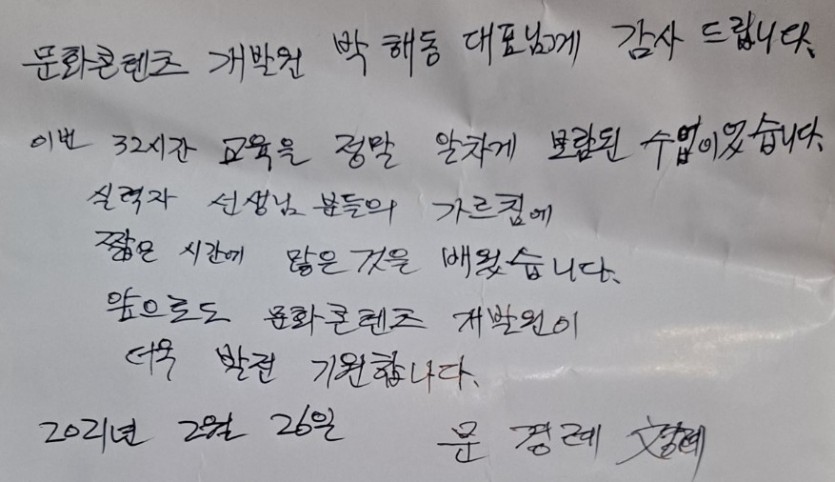 문화콘텐츠 개발원 박해동 대표님께 감사 드립니다.
이번 32시간 교육은 정말 알차게 보람된 수업이었습니다.
실력자 선생님 분들의 가르침에
짧은 시간에 많은 것을 배웠습니다.
앞으로도 문화콘텐츠 개발원이
더욱 발전 기원합니다.
2021년 2월 26일 문경례